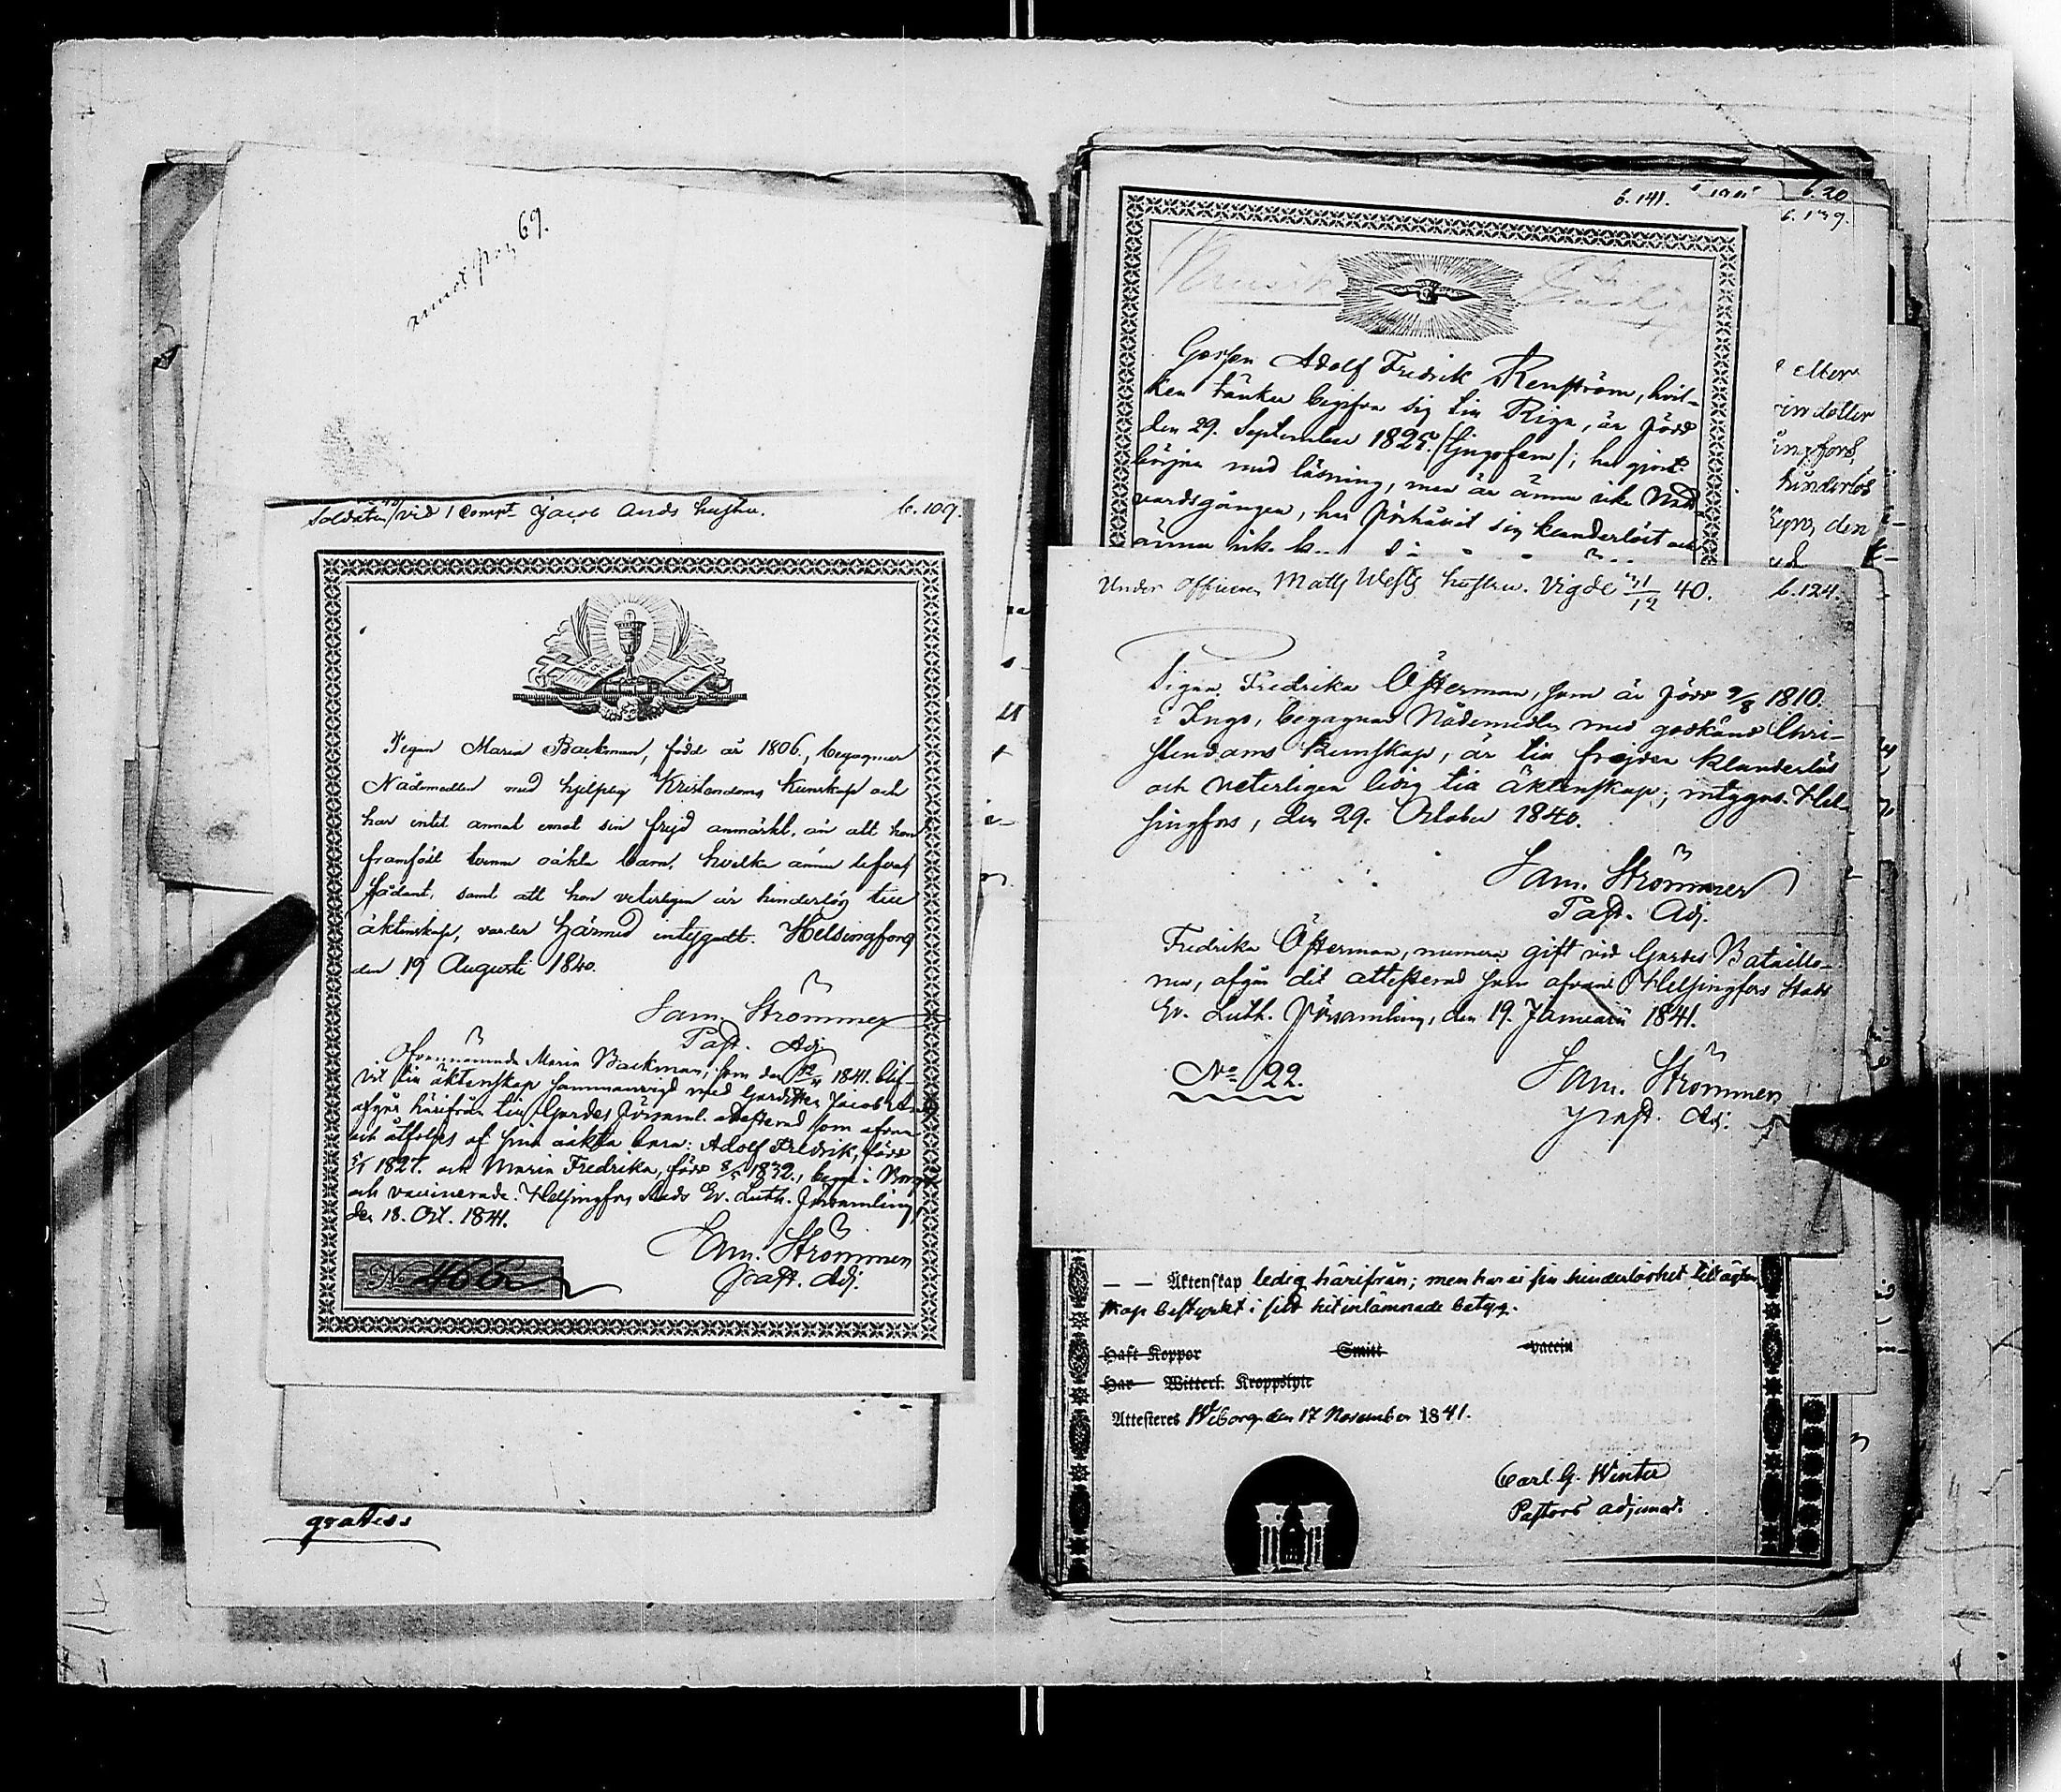 69.
Soldaten vid 1 Compt Jacob Ands hustru. b. 109.
Pigan Maria Backman, född år 1806, begagnar
Nådemedlen med hjelplig Kristendoms kunskap och
har intet annat emot sin frejd anmärkt, än att hon
framfödt tvenne oäkta barn, hvilka ännu lefva,
samt att hon veterligen är hinderlös till
äktenskap, varder härmed intygadt. Helsingfors
den 19 Augusti 1840.
Sam. Strömmer
Past. Adj.
Ofvannämnde Maria Backman, som den 1841. blif-
vit till äktenskap sammanvigd med Gardisten Jacob
afgår härifrån till Gardes Församl. attesterad som ofvan
och åtföljes af sina oäkta barn: Adolf Fredrik, född
1827. och Maria Fredrika, född 1832., begge i Borgå
och vaccinerade. Helsingfors Stads Ev. Luth. Församling,
den 18. Oct. 1841.
Sam. Strömmer
Past. Adj.
No 466
grattess
b. 141.
b. 20
b. 139.
Gossen Adolf Fredrik Renström, hvil-
ken tänker begifva sig till Riga, är född
den 29. September 1825. (tjugofem); har gjort
början med läsning, men är ännu icke Natt-
vardsgången, har förhållit sig klanderlöst och
ännu icke
dotter
fors,
hinderlös
den
Under Officeren Matts Wests hustru. Vigde 31/12 40. b. 124.
Pigan Fredrika Österman, som är född 9/8 1810.
i Ingo, begagnar Nådemedlen med godkänd Chri-
stendoms Kunskap, är till frejden klanderlös
och veterligen ledig till äktenskap; intygas. Hel-
singfors, den 29. October 1840.
Sam. Strömmer
Past. Adj.
Fredrika Österman, numera gift vid Gardes Bataillo-
nen, afgår dit attesterad som ofvan. Helsingfors Stads
Ev. Luth. Församling, den 19. Januarii 1841.
No 22.
Sam. Strömmer
Past. Adj.
— — Äktenskap ledig härifrån; men har ei sin hinderlöshet till äkten
skap bestyrkt i sitt hit inlämnade betyg.
Haft Koppor Smitt vaccin
Har Witterl. Kroppslyte
Attesteres Wiborg den 17 November 1841.
Carl G. Winter
Pastors adjunct.